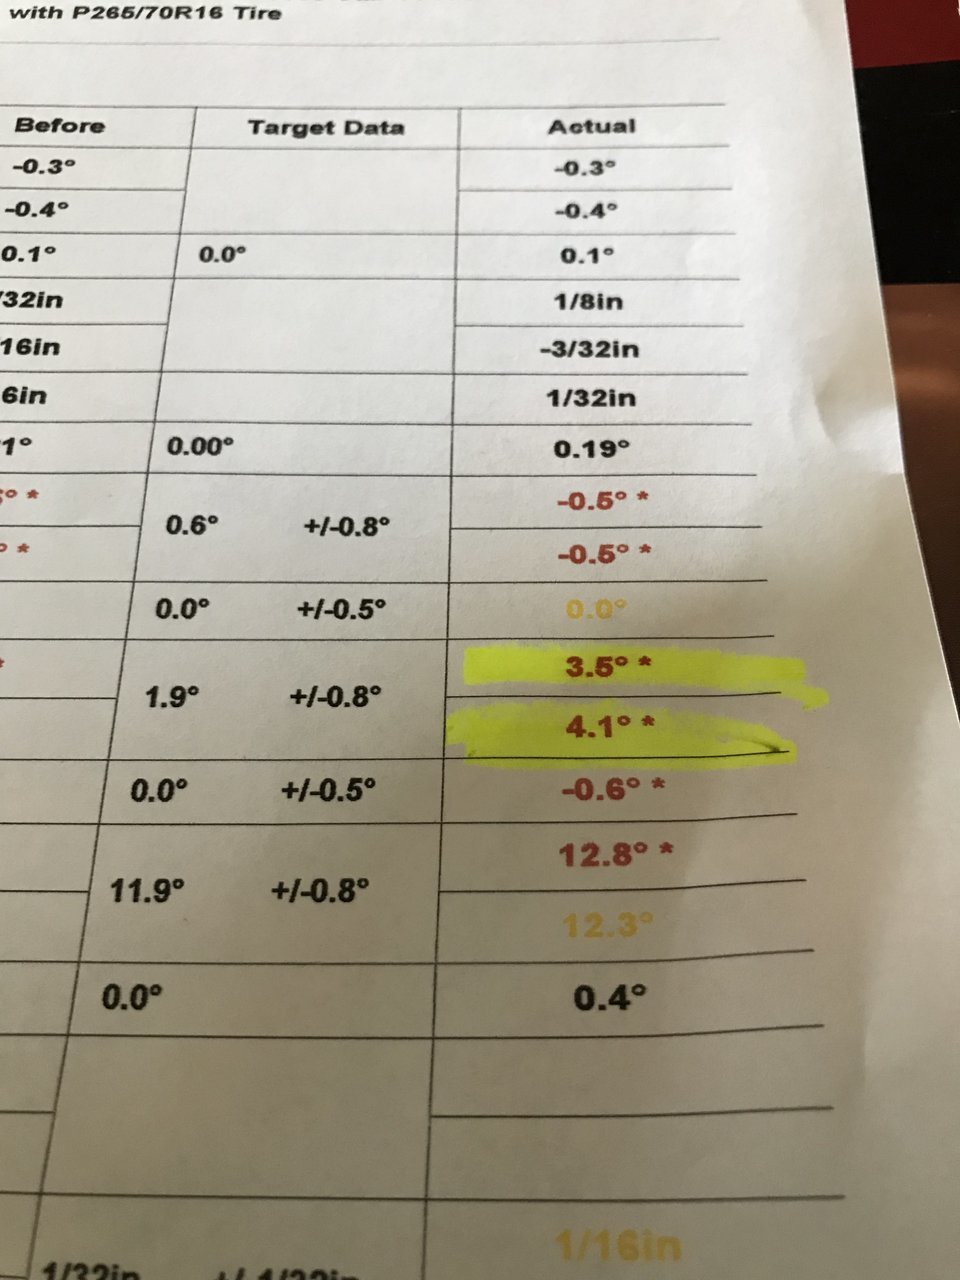 with P265/70R16 Tire
Before Target Data Actual
-0.3° -0.3°
-0.4° -0.4°
0.1° 0.0° 0.1°
/32in 1/8in
16in -3/32in
6in 1/32in
1° 0.00° 0.19°
° * -0.5° *
0.6° +/-0.8°
° * -0.5° *
0.0° +/-0.5° 0.0°
* 3.5° *
1.9° +/-0.8°
4.1° *
0.0° +/-0.5° -0.6° *
12.8° *
11.9° +/-0.8°
12.3°
0.0° 0.4°
1/16in
1/32in +/-1/32in